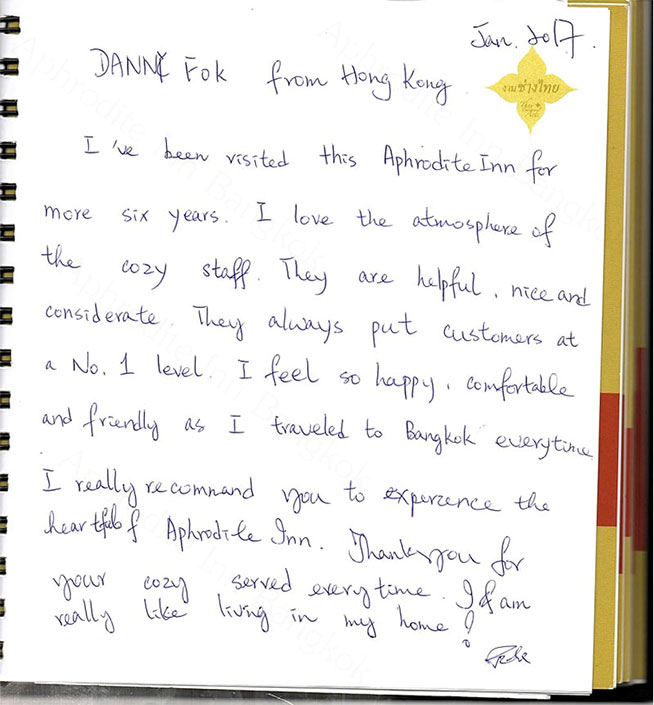 Jan. 2017.
DANNY Fok from Hong Kong
งานช่างไทย
I've been visited this Aphrodite Inn for
more six years. I love the atmosphere of
the cozy staff. They are helpful, nice and
considerate. They always put customers at
a No. 1 level. I feel so happy, comfortable
and friendly as I traveled to Bangkok everytime
I really recommand you to experence the
of Aphrodite Inn. Thank you for
your cozy served everytime. I am
really like living in my home!